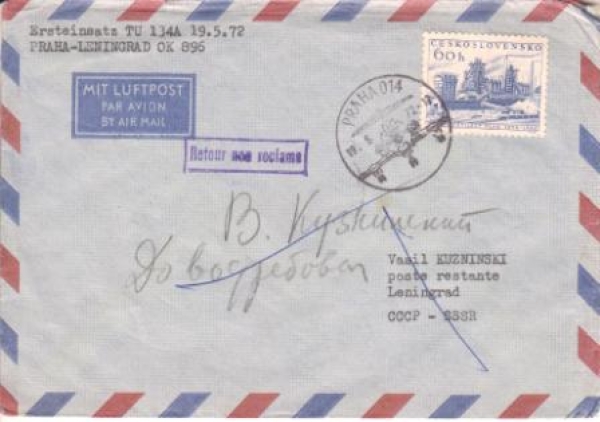 Ersteinsatz TU 134A 19.5.72
PRAHA-LENINGRAD OK 896
ČESKOSLOVENSKO
60h
MIT LUFTPOST
PAR AVION
BY AIR MAIL
PRAHA 014
Retour non reclame
В. Кузнинский
До востребован
Vasil KUZNINSKI
poste restante
Leningrad
CCCP - SSSR